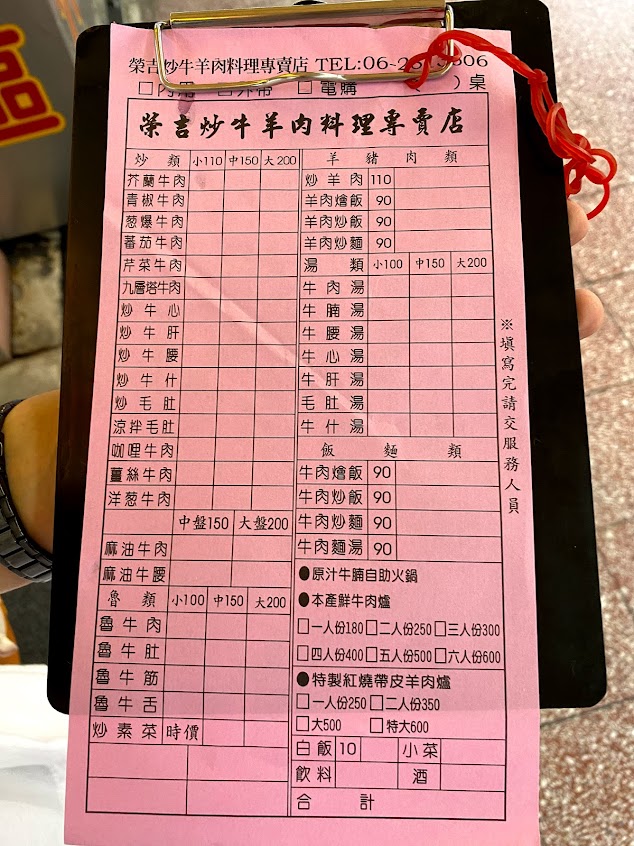 榮吉炒牛羊肉料理專賣店 TEL:06-2
內用 外帶 電購 )桌
榮吉炒牛羊肉料理專賣店
炒類 小110 中150 大200
芥蘭牛肉
青椒牛肉
葱爆牛肉
蕃茄牛肉
芹菜牛肉
九層塔牛肉
炒牛心
炒牛肝
炒牛腰
炒牛什
炒毛肚
涼拌毛肚
咖哩牛肉
薑絲牛肉
洋葱牛肉
中盤150 大盤200
麻油牛肉
麻油牛腰
魯類 小100 中150 大200
魯牛肉
魯牛肚
魯牛筋
魯牛舌
炒素菜 時價
羊豬肉類
炒羊肉 110
羊肉燴飯 90
羊肉炒飯 90
羊肉炒麵 90
湯類 小100 中150 大200
牛肉湯
牛腩湯
牛腰湯
牛心湯
牛肝湯
毛肚湯
牛什湯
飯麵類
牛肉燴飯 90
牛肉炒飯 90
牛肉炒麵 90
牛肉麵湯 90
●原汁牛腩自助火鍋
●本產鮮牛肉爐
□一人份180□二人份250□三人份300
□四人份400□五人份500□六人份600
●特製紅燒帶皮羊肉爐
□一人份250□二人份350
□大500 □特大600
白飯 10 小菜
飲料 酒
合計
※填寫完請交服務人員